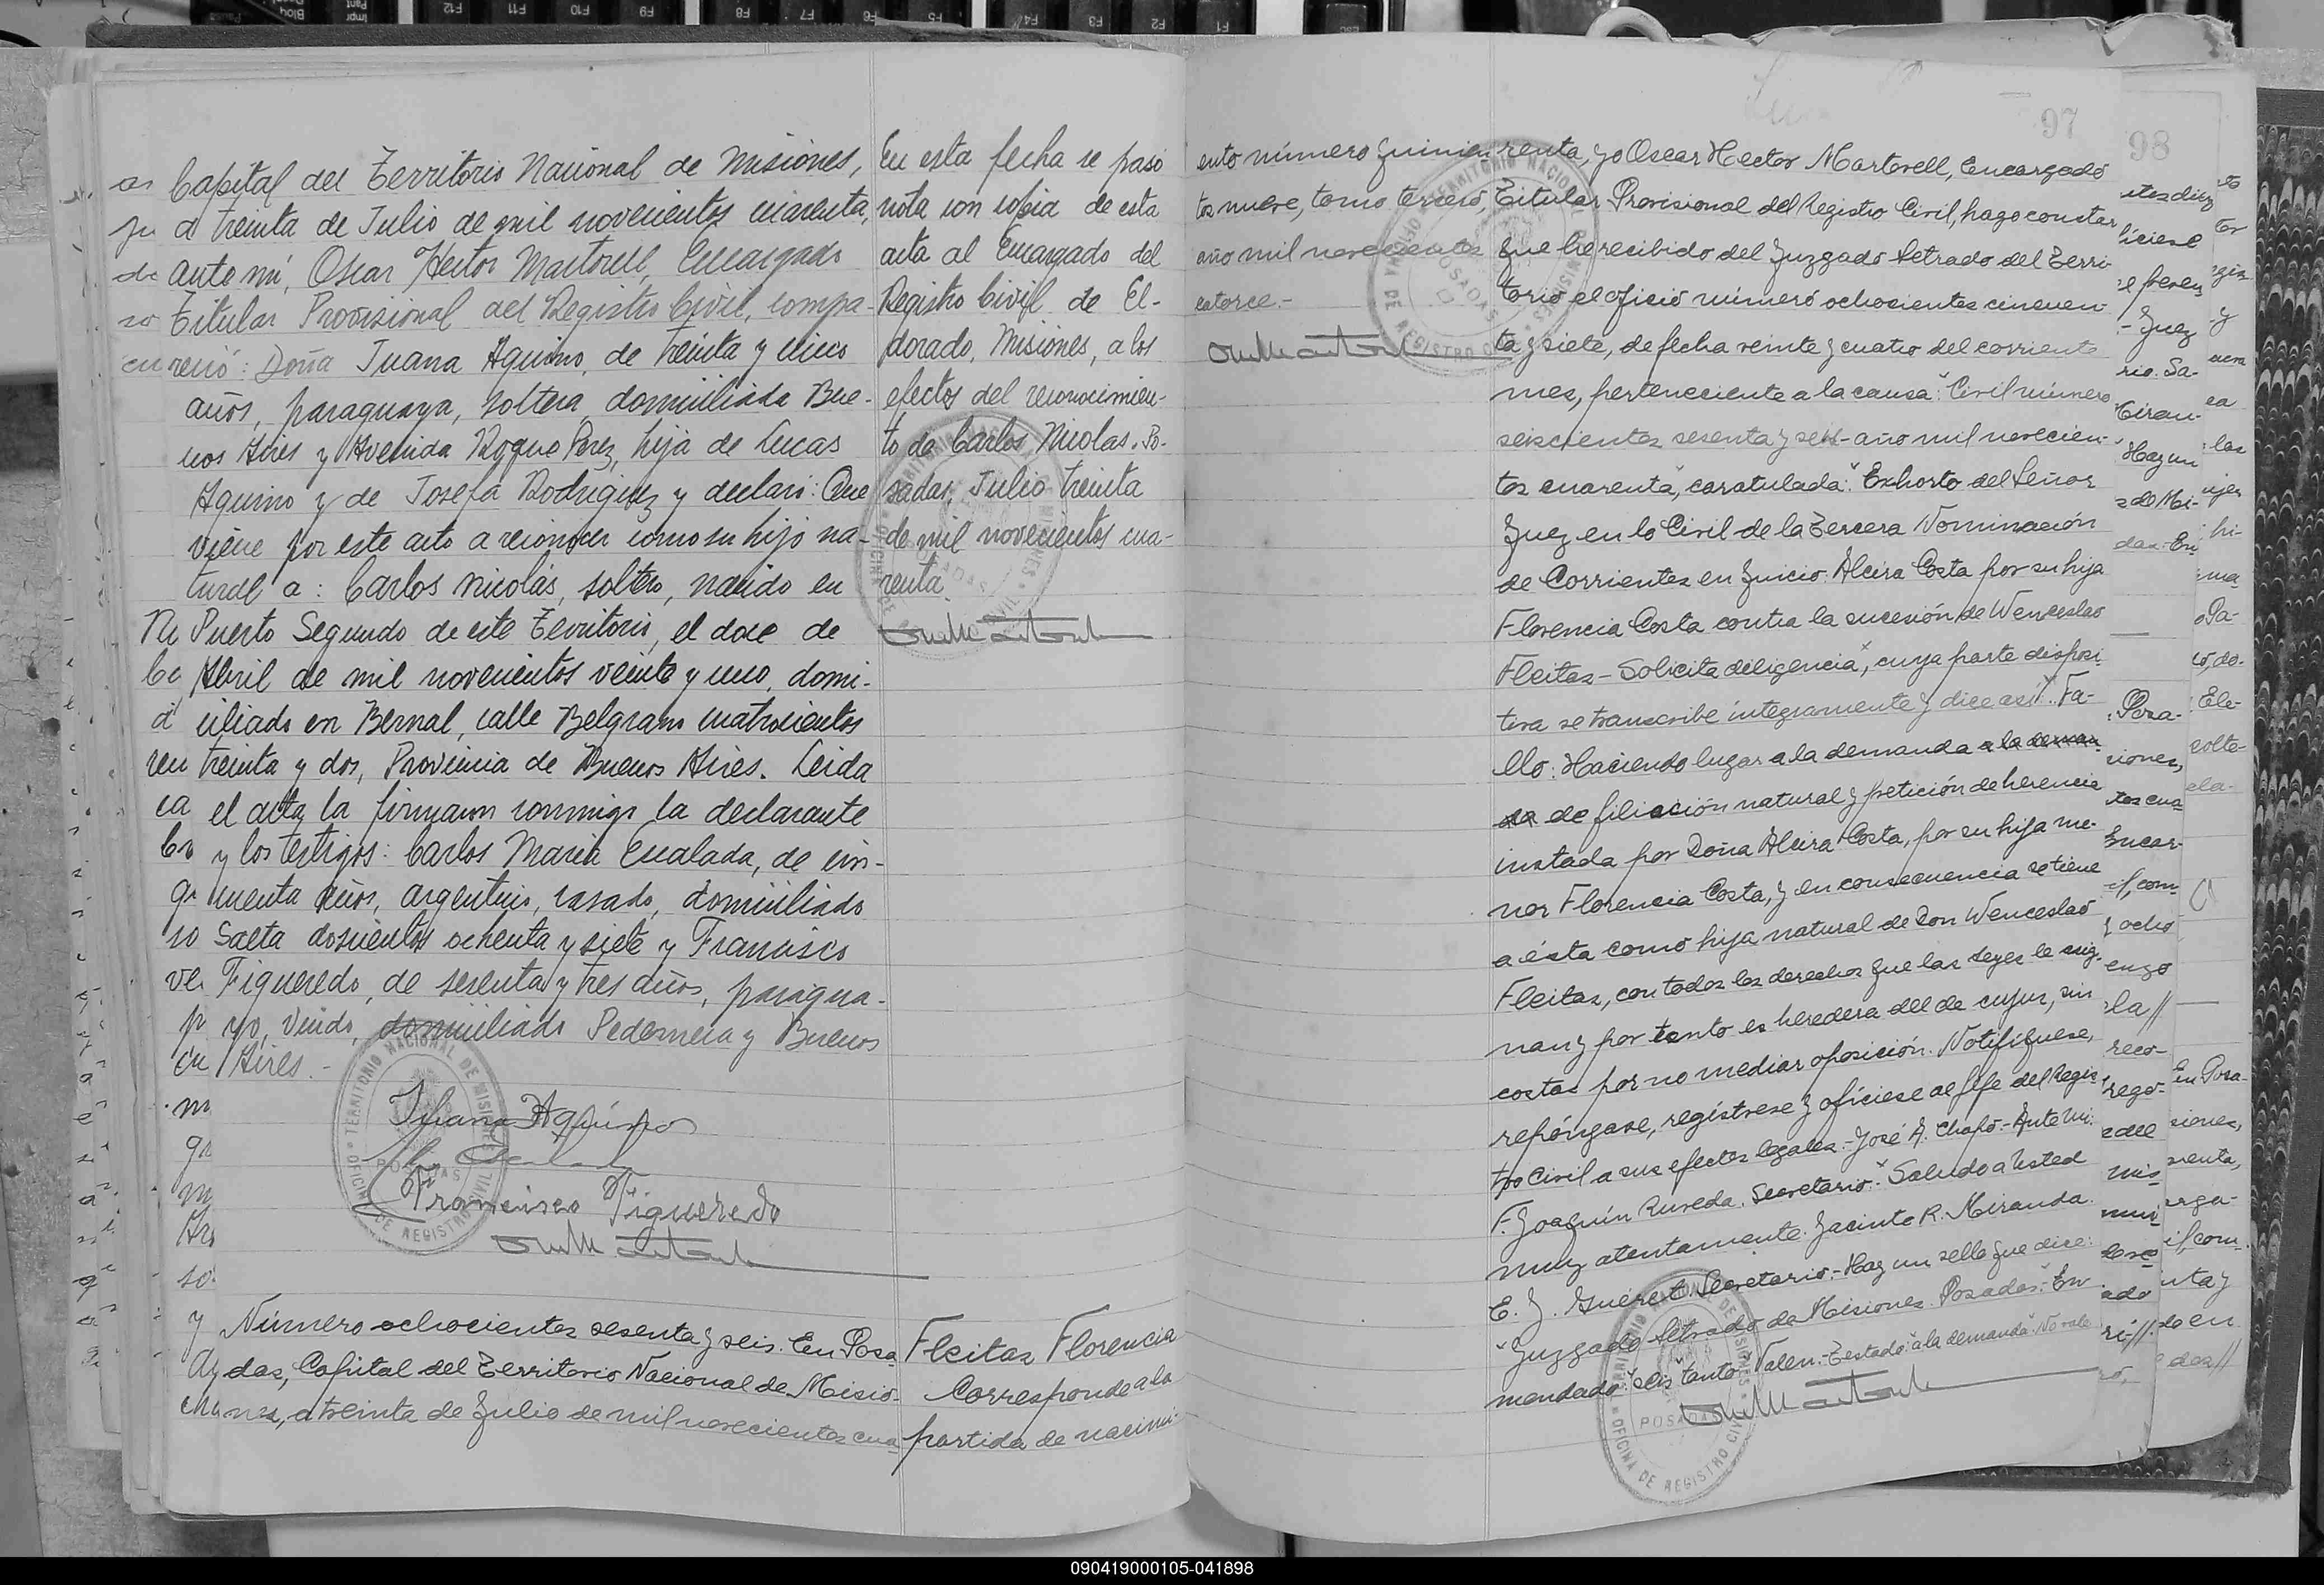 Capital del Territorio Nacional de Misiones,
a treinta de Julio de mil novecientos cuarenta,
ante mí, Oscar Hector Martorell, Encargado
Titular Provisional del Registro Civil, compa-
reció: Doña Juana Aquino, de treinta y cinco
años, paraguaya, soltera, domiciliada Bue-
nos Aires y Avenida Roque Perez, hija de Lucas
Aquino y de Josefa Rodriguez y declaró: Que
viene por este acto a reconocer como su hijo na-
tural a: Carlos Nicolás, soltero, nacido en
Puerto Segundo de este Territorio, el doce de
Abril de mil novecientos veinte y uno, domi-
ciliado en Bernal, calle Belgrano cuatrocientos
treinta y dos, Provincia de Buenos Aires. Leida
el acta la firmaron conmigo la declarante
y los testigos: Carlos Maria Encalada, de cin-
cuenta años, argentino, casado, domiciliado
Salta doscientos ochenta y siete y Francisco
Figueredo, de sesenta y tres años, paragua-
yo, viudo, domiciliado Pedernera y Buenos
Aires.-
Juana Aquino
Francisco Figueredo
En esta fecha se pasó
nota con copia de esta
acta al Encargado del
Registro Civil de El-
dorado, Misiones, a los
efectos del reconocimien-
to de Carlos Nicolas. Po-
sadas, Julio treinta
de mil novecientos cua-
renta.
TERRITORIO NACIONAL DE MISIONES
POSADAS
OFICINA DE REGISTRO CIVIL
Número ochocientos sesenta y seis. En Posa-
das, Capital del Territorio Nacional de Misio-
nes, a treinta de Julio de mil novecientos cua-
Fleitas Florencia
Corresponde a la
partida de nacimi-
97
98
ento número quinien
tos nueve, tomo tercero,
año mil novecientos
catorce.-
renta, yo Oscar Hector Martorell, Encargado
Titular Provisional del Registro Civil, hago constar
que he recibido del Juzgado Letrado del Terri-
torio el oficio número ochocientos cincuen-
ta y siete, de fecha veinte y cuatro del corriente
mes, perteneciente a la causa: "Civil número
seiscientos sesenta y seis-año mil novecien-
tos cuarenta", caratulada: "Exhorto del Señor
Juez en lo Civil de la Tercera Nominación
de Corrientes en Juicio: Alcira Costa por su hija
Florencia Costa contra la sucesión de Wenceslao
Fleitas-Solicita diligencia", cuya parte disposi
tiva se transcribe íntegramente y dice así: "Fa-
llo: Haciendo lugar a la demanda a la deman
da de filiación natural y petición de herencia
instada por Doña Alcira Costa, por su hija me-
nor Florencia Costa, y en consecuencia se tiene
a ésta como hija natural de Don Wenceslao
Fleitas, con todos los derechos que las leyes le asig-
nan y por tanto es heredera del de cujus, sin
costas por no mediar oposición. Notifíquese,
repóngase, regístrese y ofíciese al Jefe del Regis-
tro Civil a sus efectos legales.-José A. Chapo.-Ante mi:
F. Joaquín Ruveda. Secretario.-" Saludo a Usted
muy atentamente. Jacinto R. Miranda.
E. J. Gueret Secretario.-Hay un sello que dice:
"Juzgado Letrado de Misiones. Posadas.-En-
mendado "seis" "tanto" Valen.-Testado "a la demanda" No vale
TERRITORIO NACIONAL DE MISIONES
POSADAS
OFICINA DE REGISTRO CIVIL
090419000105-041898